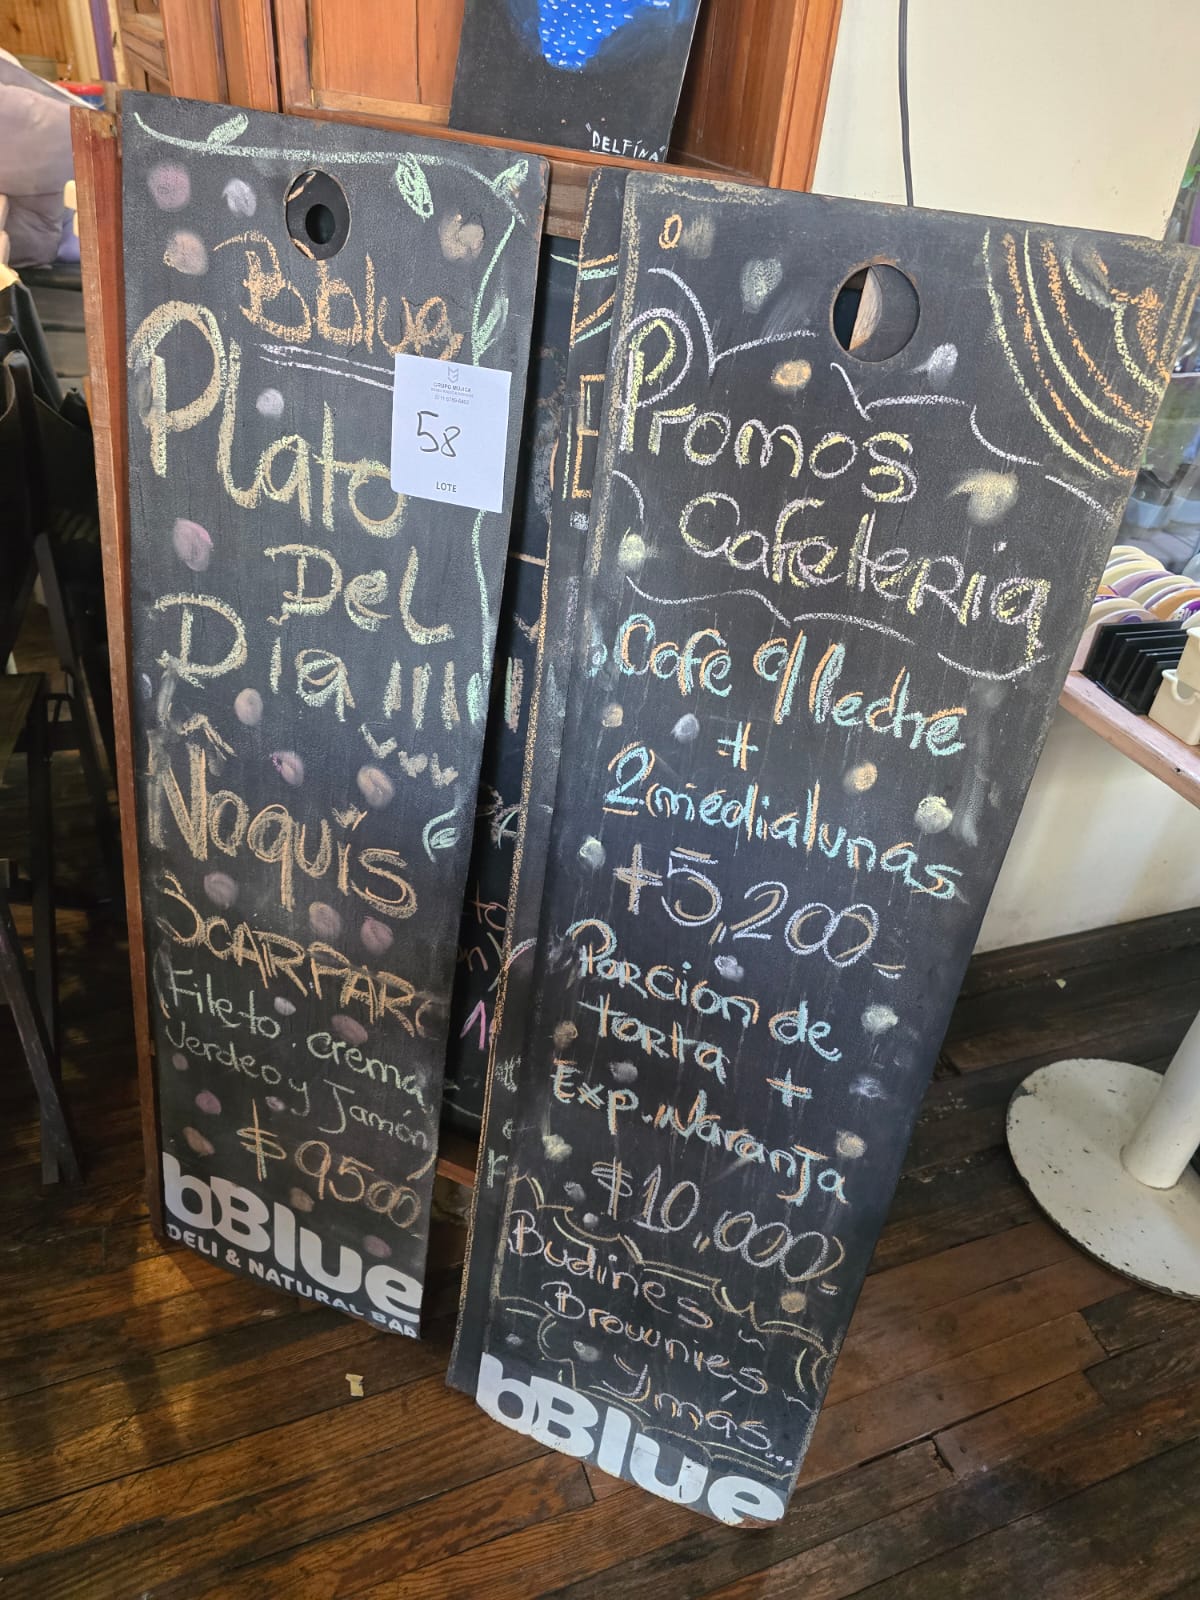 "DELFÍNA"
Bblue
Plato
Del
Día
Ñoquis
SCARPARO
Fileto, crema,
Verdeo y Jamón
$9500
bBlue
DELI & NATURAL BAR
GRUPO MUJICA
58
LOTE
Promos
Cafeteria
Cafe c/leche
+
2 medialunas
$5,200-
Porcion de
torta +
Exp. Naranja
$10,000-
Budines
Brownies
y más...
bBlue